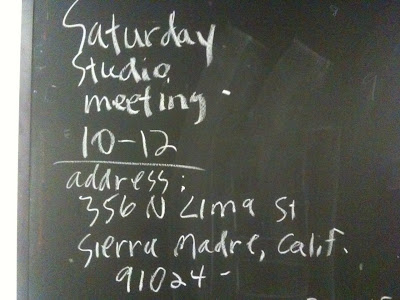 Saturday
Studio
meeting -
10-12
address:
356 N Lima St
Sierra Madre, Calif.
91024-